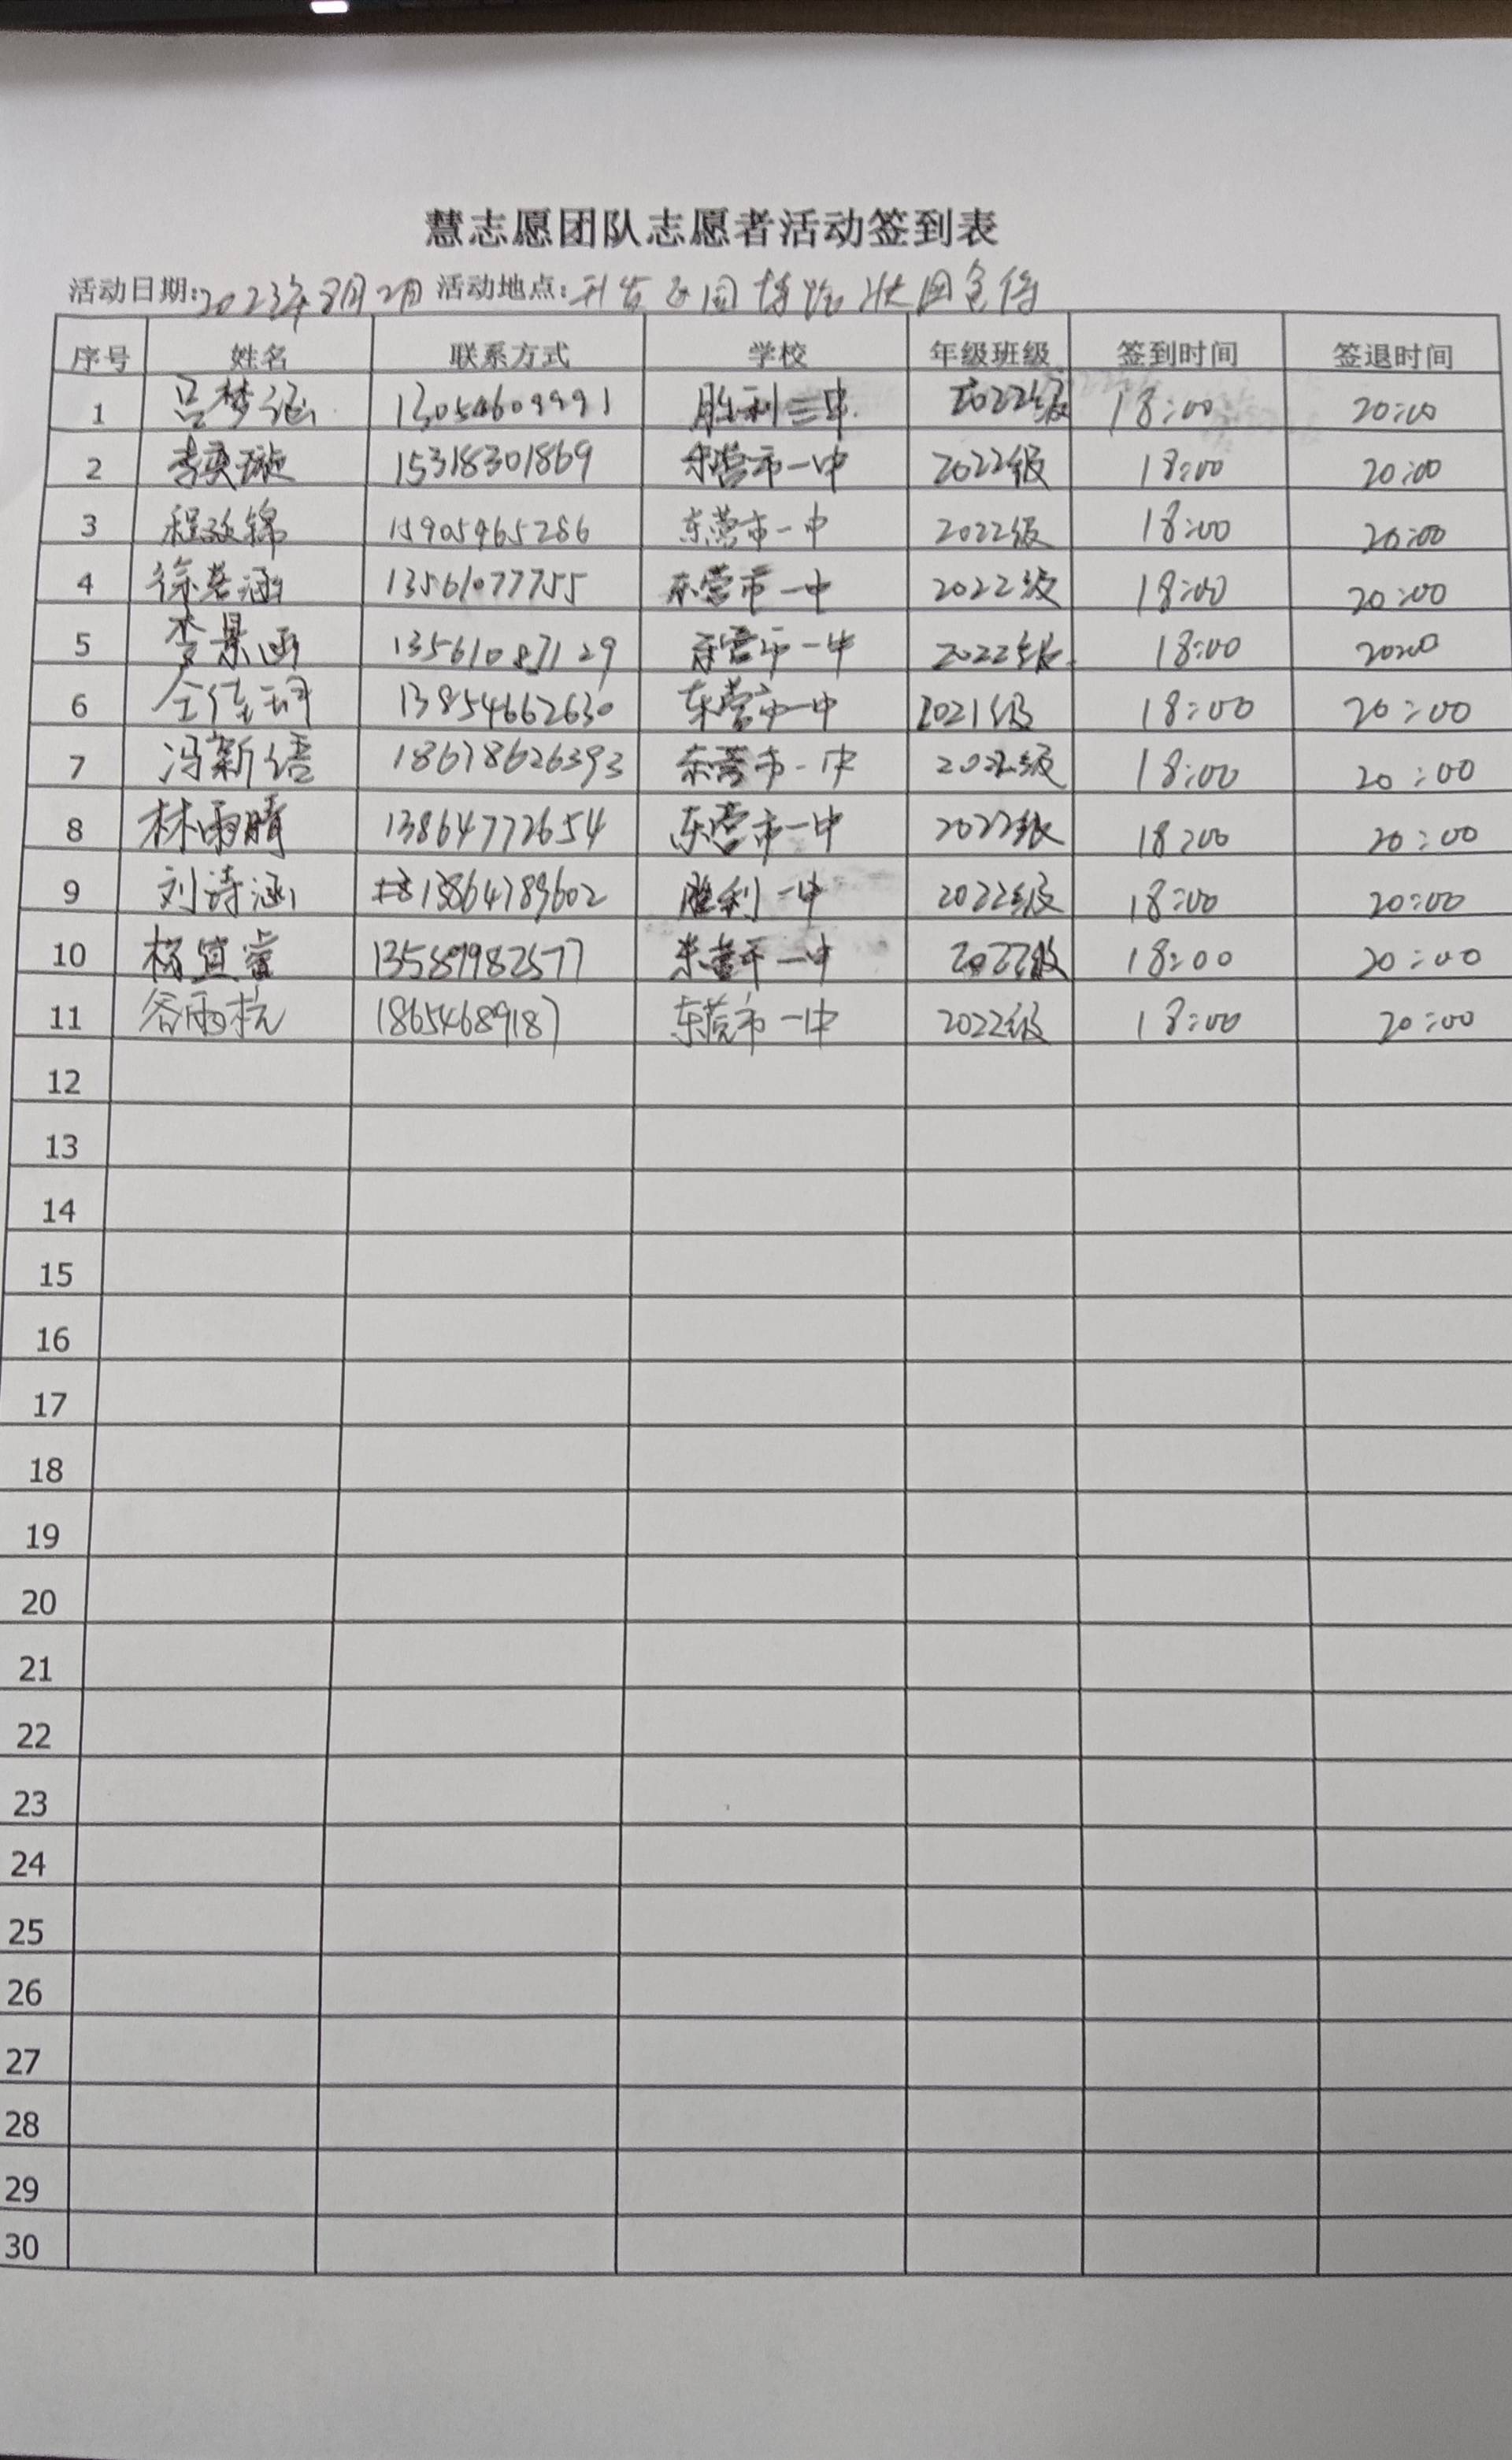 慧志愿团队志愿者活动签到表
活动日期:2023年8月2日 活动地点:
序号 姓名 联系方式 学校 年级班级 签到时间 签退时间
1 吕梦涵 13054609991 胜利二中 2022级 18:00 20:00
2 李奕璇 15318301869 东营市一中 2022级 18:00 20:00
3 程 锦 15905465286 东营市一中 2022级 18:00 20:00
4 徐若涵 13561077755 东营市一中 2022级 18:00 20:00
5 李景涵 13561087129 东营市一中 2022级 18:00 20:00
6 仝佳 13854662630 东营市一中 2021级 18:00 20:00
7 冯新语 18678626393 东营市一中 18:00 20:00
8 林雨晴 13864772654 东营市一中 2022级 18:00 20:00
9 刘诗涵 13864789602 胜利一中 2022级 18:00 20:00
10 杨宜萱 13589982577 东营市一中 2022级 18:00 20:00
11 谷雨杭 18654689187 东营市一中 2022级 18:00 20:00
12
13
14
15
16
17
18
19
20
21
22
23
24
25
26
27
28
29
30